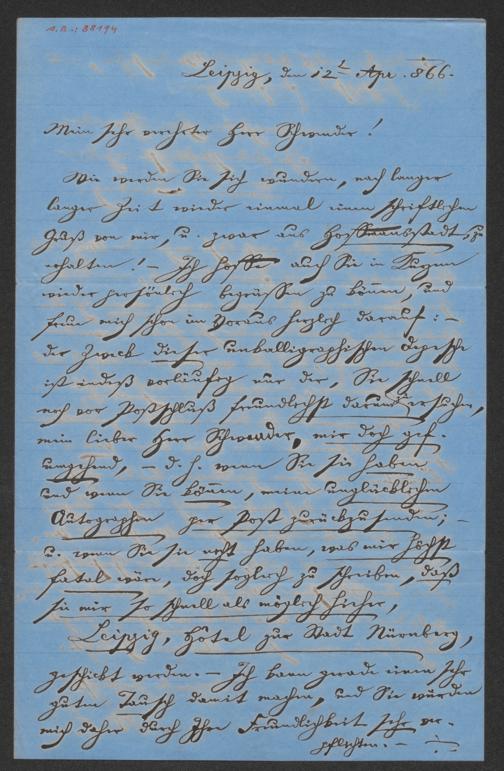 A.N.: 38194
Leipzig, den 12t Apr. 866.
Mein sehr verehrter Herr Schwender!
Wie werden Sie sich wundern, nach langer
langer Zeit wieder einmal einen schriftlichen
Gruß von mir, u. zwar aus
erhalten! – Ich hoffe auch Sie in
wieder persönlich begrüßen zu können, und
freue mich schon im Voraus herzlich darauf: –
der Zweck dieser unkalligraphischen Depesche
ist indeß vorläufig nur der, Sie schnell
noch vor Postschluß freundlichst darum ersuchen,
mein lieber Herr Schwender, mir doch gef.
umgehend, – d. h. wenn Sie sie haben
und wenn Sie können, meine unglücklichen
Autographen per Post zurückzusenden; –
u. wenn Sie sie nicht haben, was mir höchst
fatal wäre, doch sogleich zu schreiben, daß
sie mir so schnell als möglich hieher,
Leipzig, Hôtel zur Stadt Nürnberg,
geschickt werden. – Ich kann gerade einen sehr
guten Tausch damit machen, und Sie würden
mich daher durch Ihre Freundlichkeit sehr ver-
pflichten. –